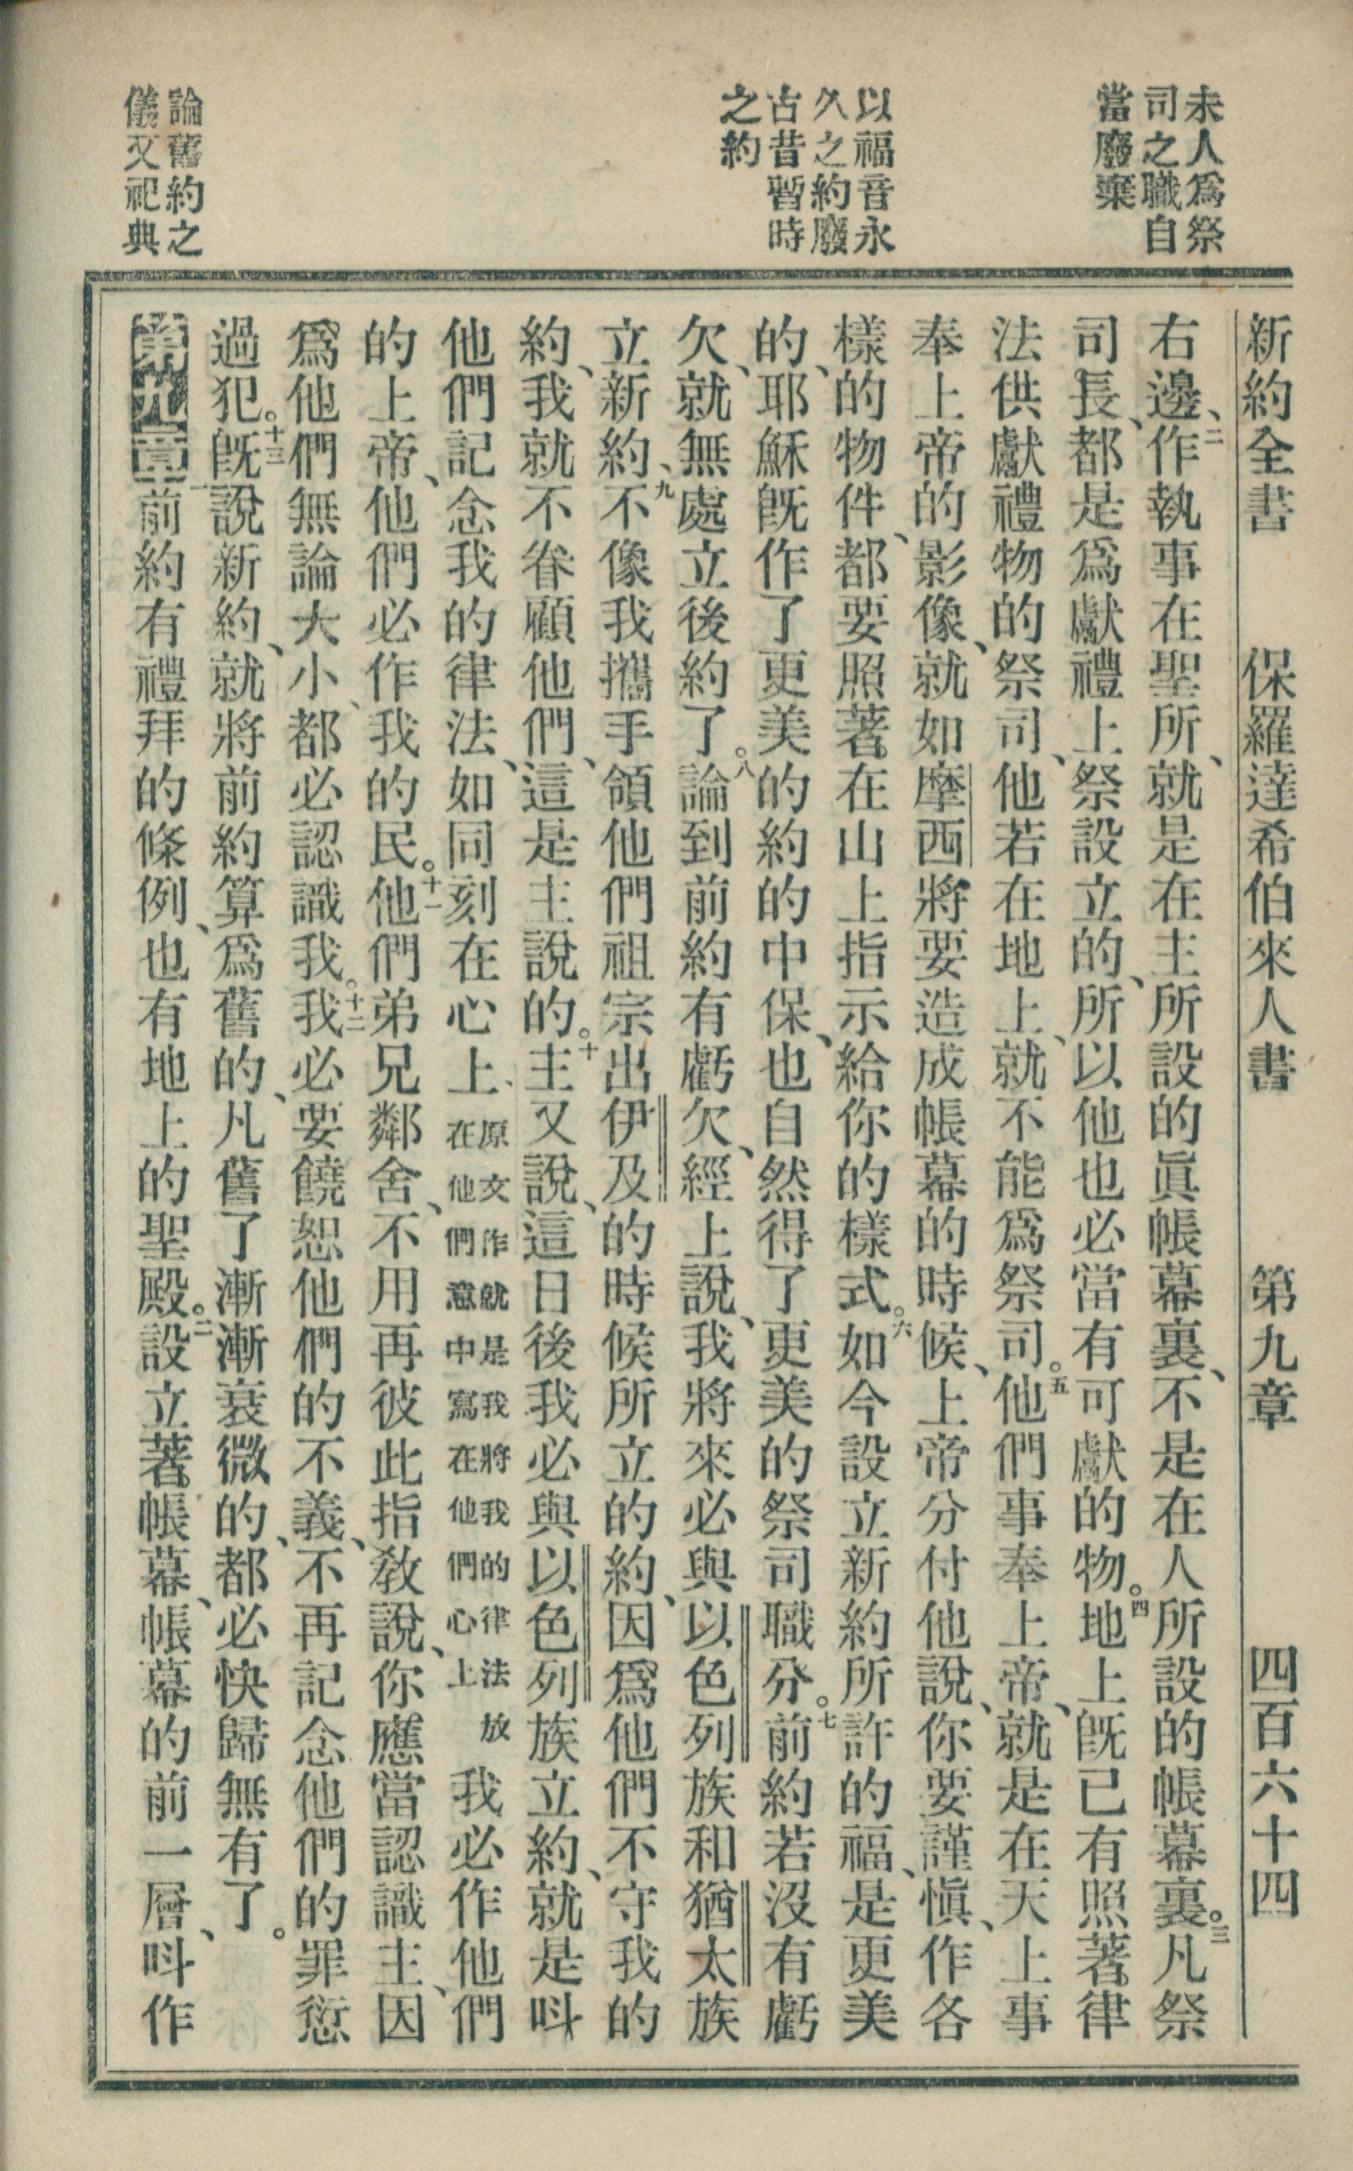 未人爲祭
司之職自
當廢棄
以福音永
久之約廢
古昔暫時
之約
論舊約之
儀文祀典
新約全書 保羅達希伯來人書 第九章 四百六十四
右邊、二作執事在聖所、就是在主所設的眞帳幕裏、不是在人所設的帳幕裏。三凡祭
司長、都是爲獻禮上祭設立的、所以他也必當有可獻的物。四地上旣已有照著律
法供獻禮物的祭司、他若在地上、就不能爲祭司。五他們事奉上帝、就是在天上事
奉上帝的影像、就如摩西將要造成帳幕的時候、上帝分付他說、你要謹愼、作各
樣的物件、都要照著在山上指示給你的樣式。六如今設立新約所許的福、是更美
的、耶穌旣作了更美的約的中保、也自然得了更美的祭司職分。七前約若沒有虧
欠、就無處立後約了。八論到前約有虧欠、經上說、我將來必與以色列族和猶太族
立新約、九不像我攜手領他們祖宗出伊及的時候所立的約、因爲他們不守我的
約、我就不眷顧他們、這是主說的。十主又說、這日後我必與以色列族立約、就是呌
他們記念我的律法、如同刻在心上、原文作就是我將我的律法放在他們意中寫在他們心上我必作他們
的上帝、他們必作我的民。十一他們弟兄鄰舍、不用再彼此指敎說、你應當認識主、因
爲他們無論大小、都必認識我。十二我必要饒恕他們的不義、不再記念他們的罪愆
過犯。十三旣說新約、就將前約算爲舊的、凡舊了漸漸衰微的、都必快歸無有了。
第九章一前約有禮拜的條例、也有地上的聖殿。二設立著帳幕、帳幕的前一層、呌作